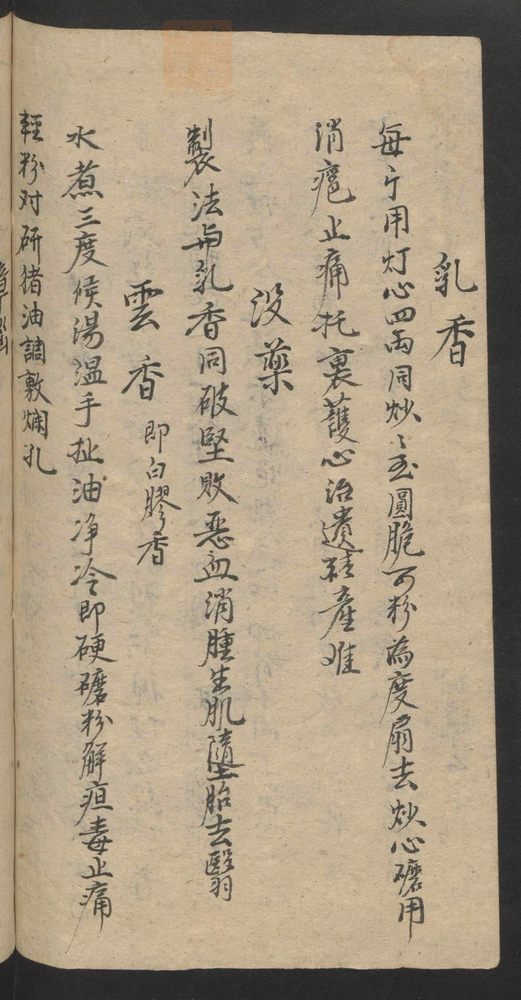 乳香
每斤用灯心四両同炒〻至圓脆可粉為度扇去灯心磨用
消疤止痛托裏護心治遺精産难
没藥
製法与乳香同破堅敗惡血消腫生肌墮胎去翳
雲香 即白膠香
水煮三度候湯温手扯油净冷即硬磨粉解疽毒止痛
輕粉对研猪油調敷爛孔